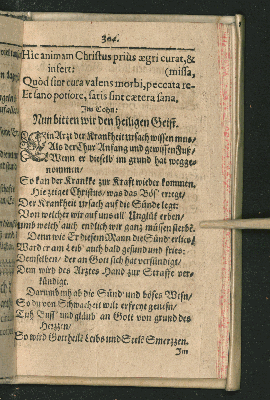 304.
Hic animam Christus prius ægri curat, &
infert: (missa,
Quòd sint cuncta valens morbi, peccata re-
Et sano potiore, satis sint cætera sana.
Im Tohn:
Nun bitten wir den heiligen Geist.
Ein Arzt der Krankheit ursach wissen mus/
Als der Chur Anfang und gewissen Fuß/
Wenn er dieselb im grund hat wegge-
nommen/
So kan der Krankke zur Kraft wieder kommen.
Hie zeiget Christus/ was das Böß' erregt/
Der Krankheit Ursach auf die Sünde legt:
Von welcher wir auf uns all' Unglük erben/
und welch' auch endlich wir ganz müssen sterbe.
Denn wie Er diesem Mann die Sünd erlies/
Ward er am Leib' auch bald gesund und fries:
Demselben/ der an Gott sich hat versündigt/
Dem wird des Arztes Hand zur Straffe ver-
kündigt.
Darumb thu ab die Sünd' und böses Wesn/
So du von Schwacheit wilt erfreyt genesn/
Tuh Buss' und gläub' an Gott von grund des
Herzzen/
So wird Gott heiln Leibs und Seele Smerzzen.
Im